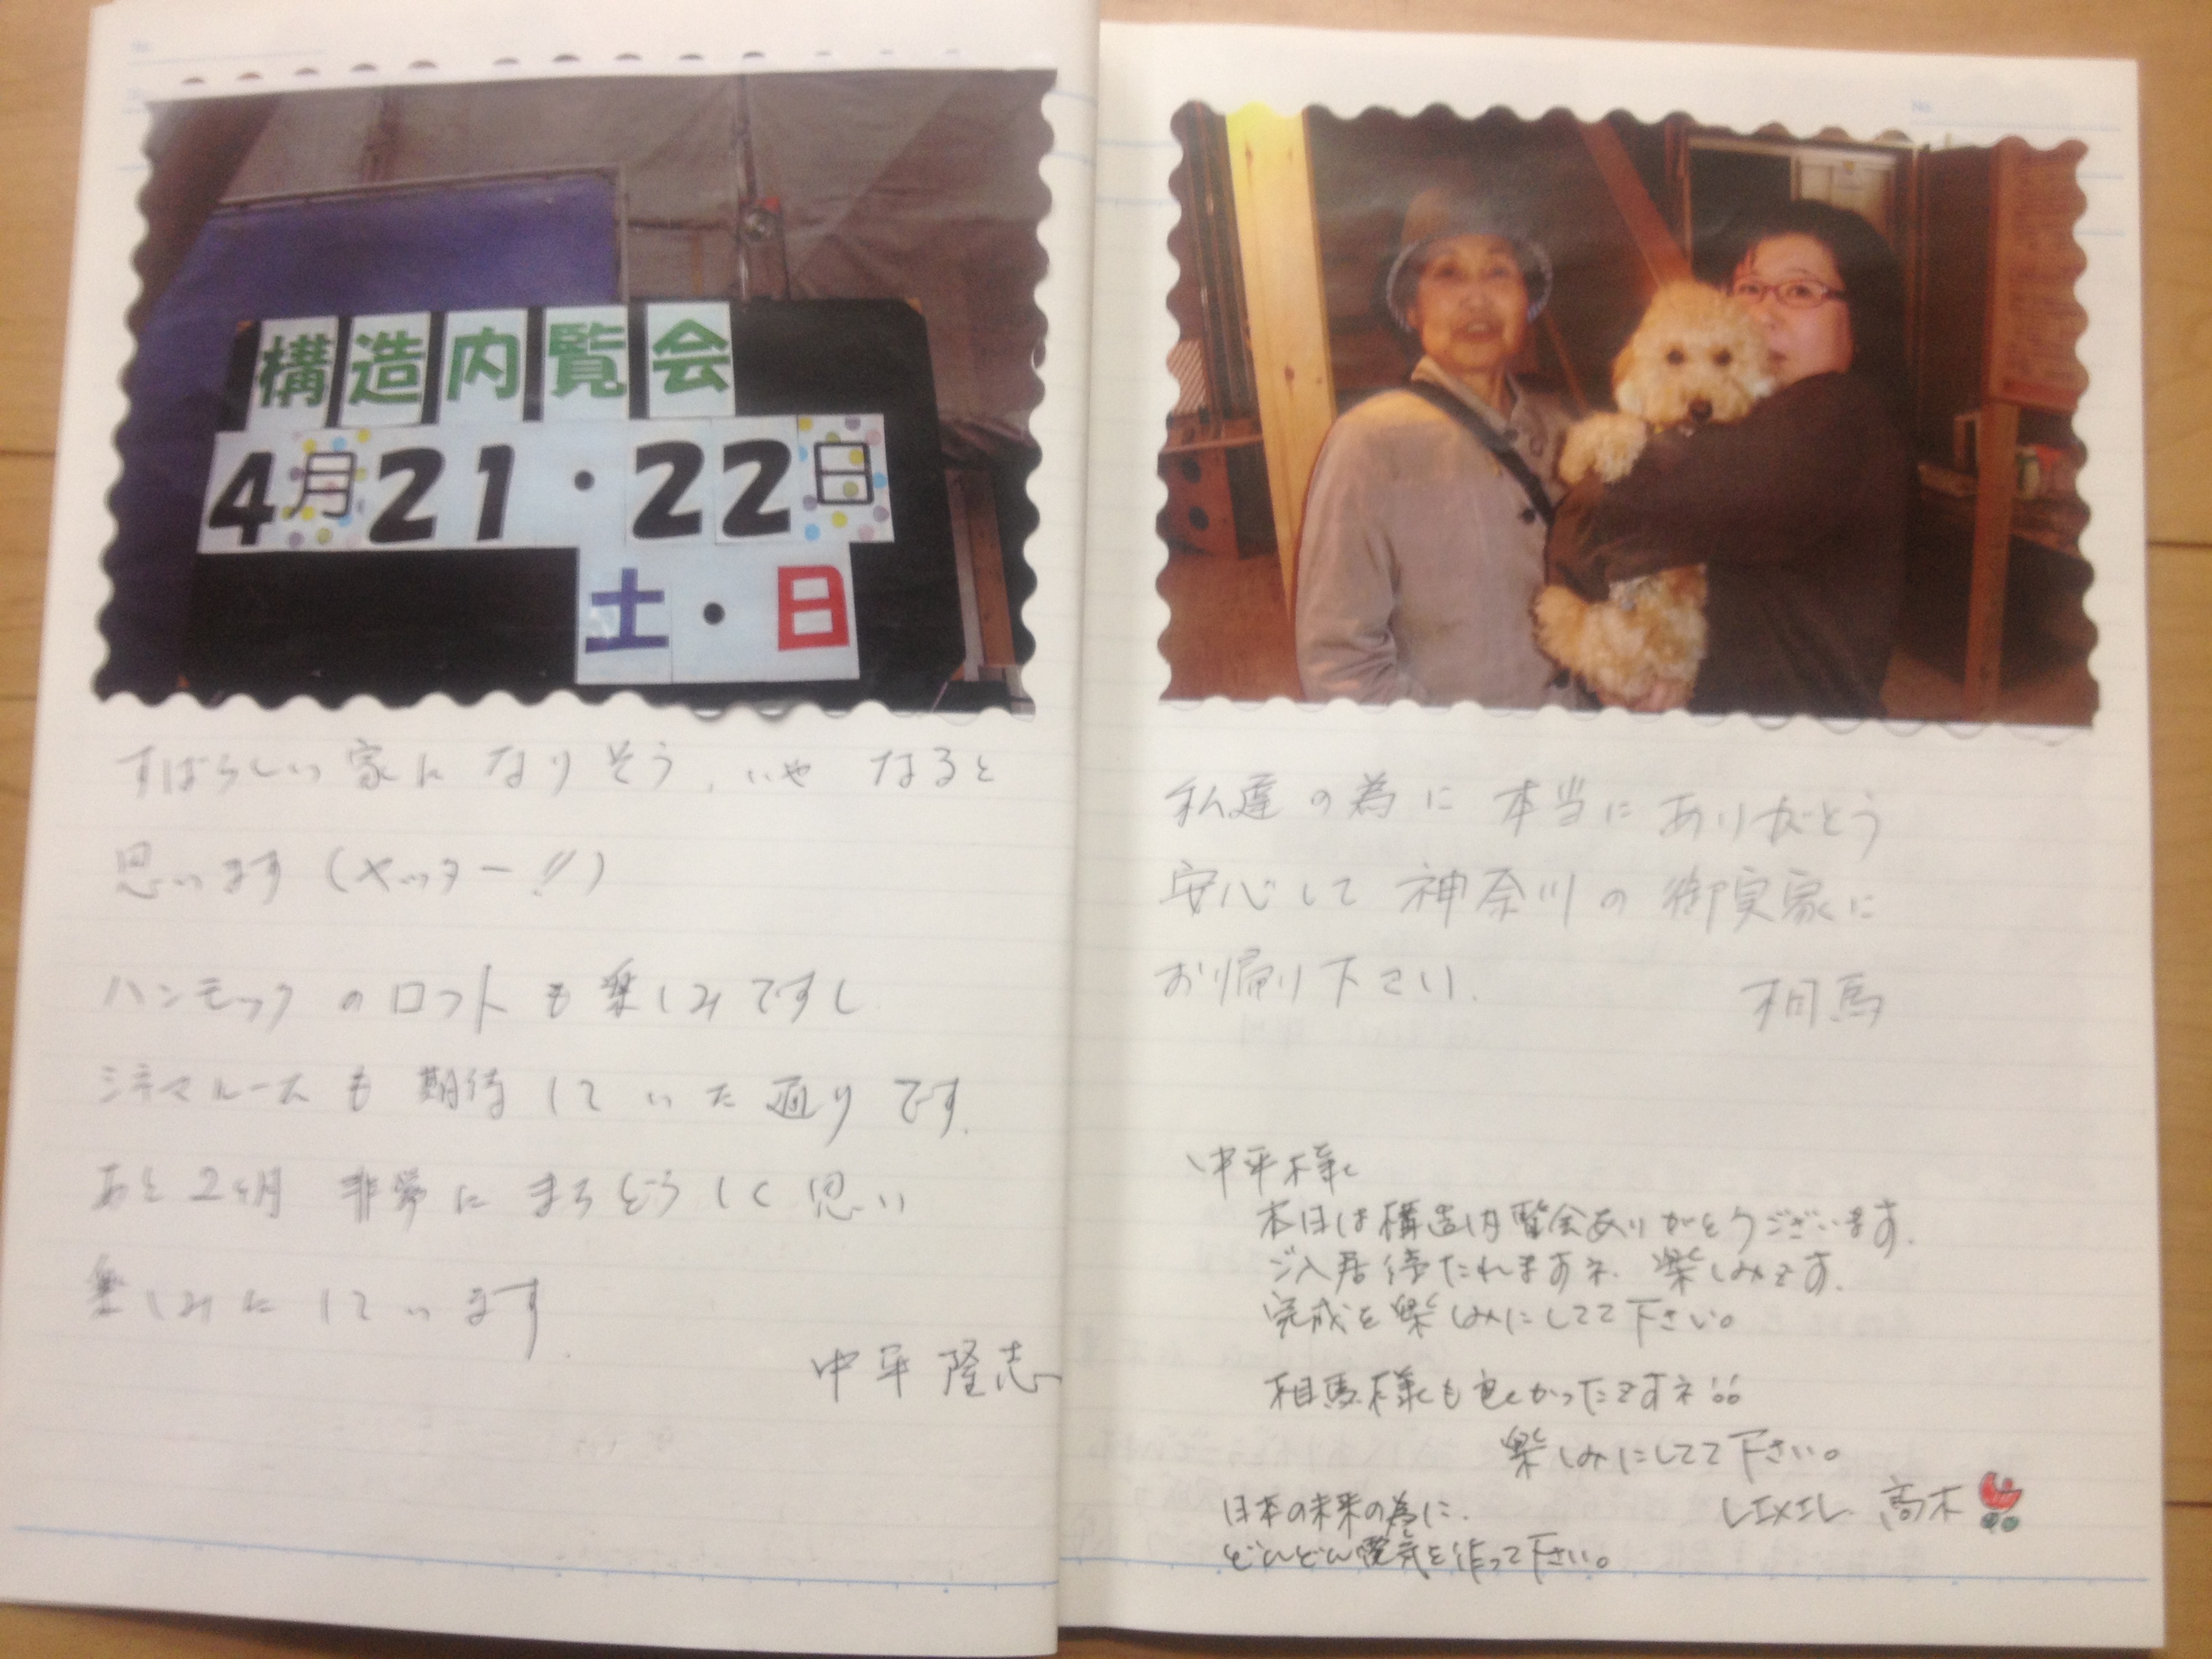 構造内覧会
4月21・22日
土・日
すばらしい家になりそう、いや なると
思います(ヤッター!!)
ハンモックのロフトも楽しみですし
シネマルームも期待していた通りです。
あと2ヶ月 非常にまちどうしく思い
楽しみにしています。
中平 隆志
私達の為に本当にありがとう
安心して神奈川の御実家に
お帰り下さい.
相馬
中平様
本日は構造内覧会ありがとうございます。
ご入居待たれますネ. 楽しみです.
完成を楽しみにしてて下さい。
相馬様も良かったですネ!!
楽しみにしてて下さい。
LIXIL 高木
日本の未来の為に.
どんどん電気を作って下さい。